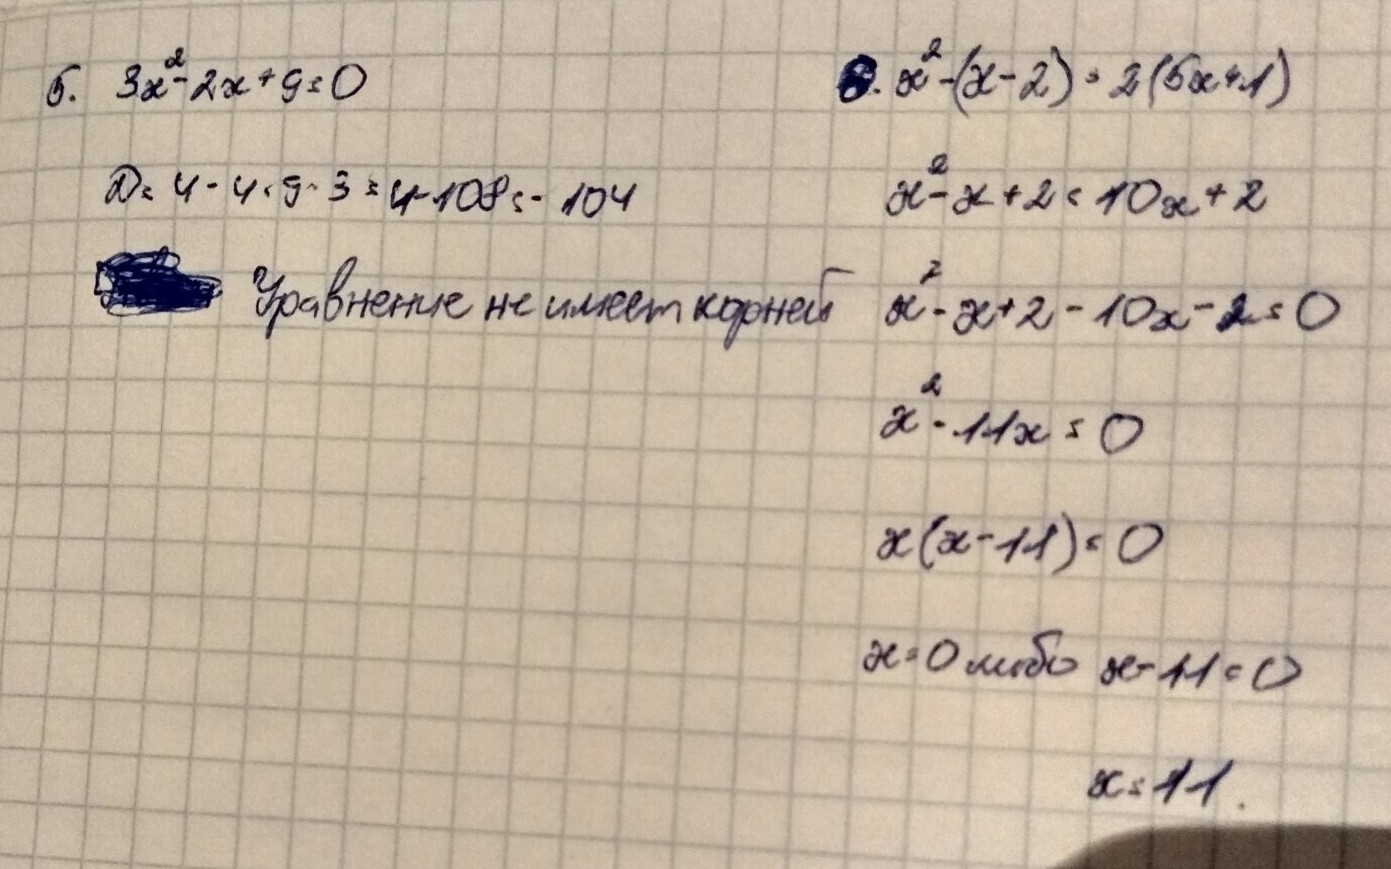 б. 3x² - 2x + 9 = 0
D = 4 - 4 · 9 · 3 = 4 - 108 = - 104
Уравнение не имеет корней
в. x² - (x - 2) = 2(5x + 1)
x² - x + 2 = 10x + 2
x² - x + 2 - 10x - 2 = 0
x² - 11x = 0
x(x - 11) = 0
x = 0 либо x - 11 = 0
x = 11.